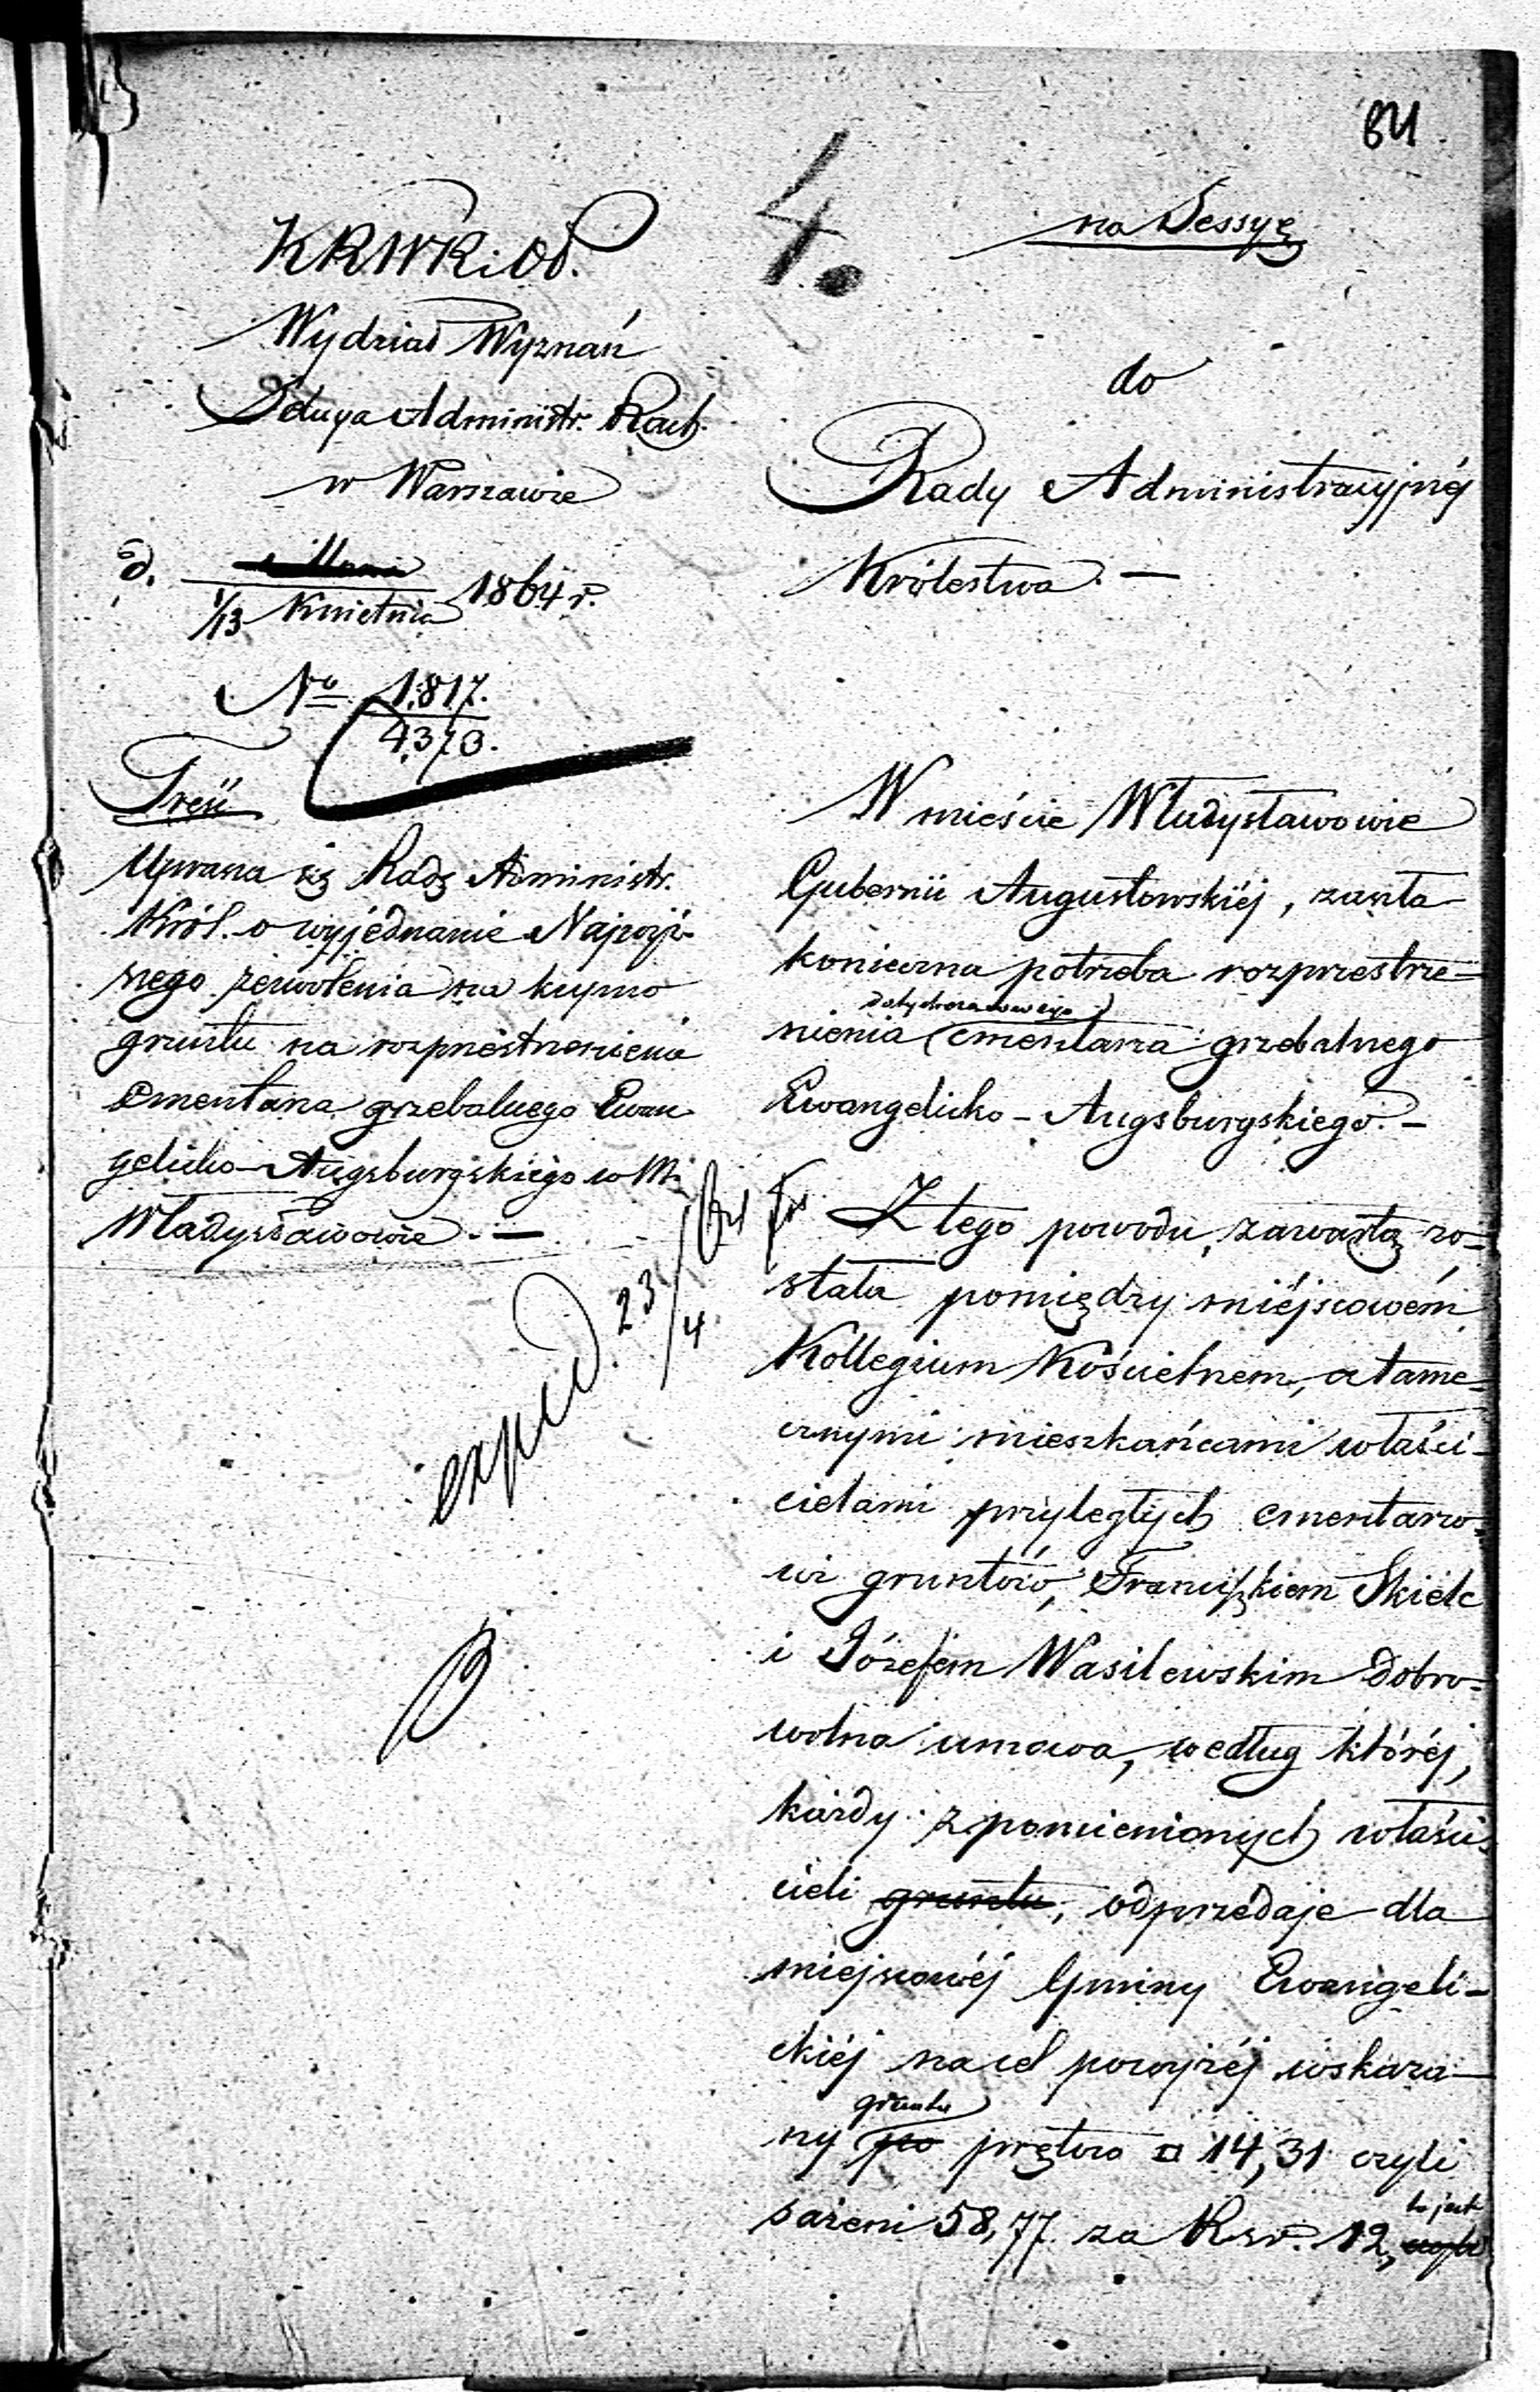 84
4.
na Sessyę
KRWRiOP.
Wydział Wyznań
Sekcya Administr. Rach.
w Warszawie
d. 1/13 Kwietnia 1864 r.
No 1817.
4370.
Treść
Uprasza się Radę Administr.
Król. o wyjednanie Najwyż-
szego zezwolenia na kupno
gruntu na rozprzestrzenienie
cmentarza grzebalnego Ewan
gelicko-Augsburgskiego w M.
Władysławowie. —
exped. 23/4 64
do
Rady Administracyjnéj
Królestwa. —
W mieście Władysławowie
Gubernii Augustowskiéj, zaszła
konieczna potrzeba rozprzestrze-
nienia dotychczasowego cmentarza grzebalnego
Ewangelicko-Augsburgskiego. —
Z tego powodu, zawartą zo-
stała pomiędzy miéjscowém
Kollegium Kościelnem, a tame-
cznymi mieszkańcami właści-
cielami przyległych cmentarzo-
wi gruntów, Franciszkiem Skielc
i Józefem Wasilewskim dobro-
wolna umowa, według któréj,
każdy z pomienionych właści-
cieli gruntu, odprzedaje dla
miejscowéj Gminy Ewangeli-
ckiéj na cel powyżéj wskaza-
ny po gruntu prętów □ 14,31 czyli
sażeni 58,77 za Rsr. 12, czyli to jest